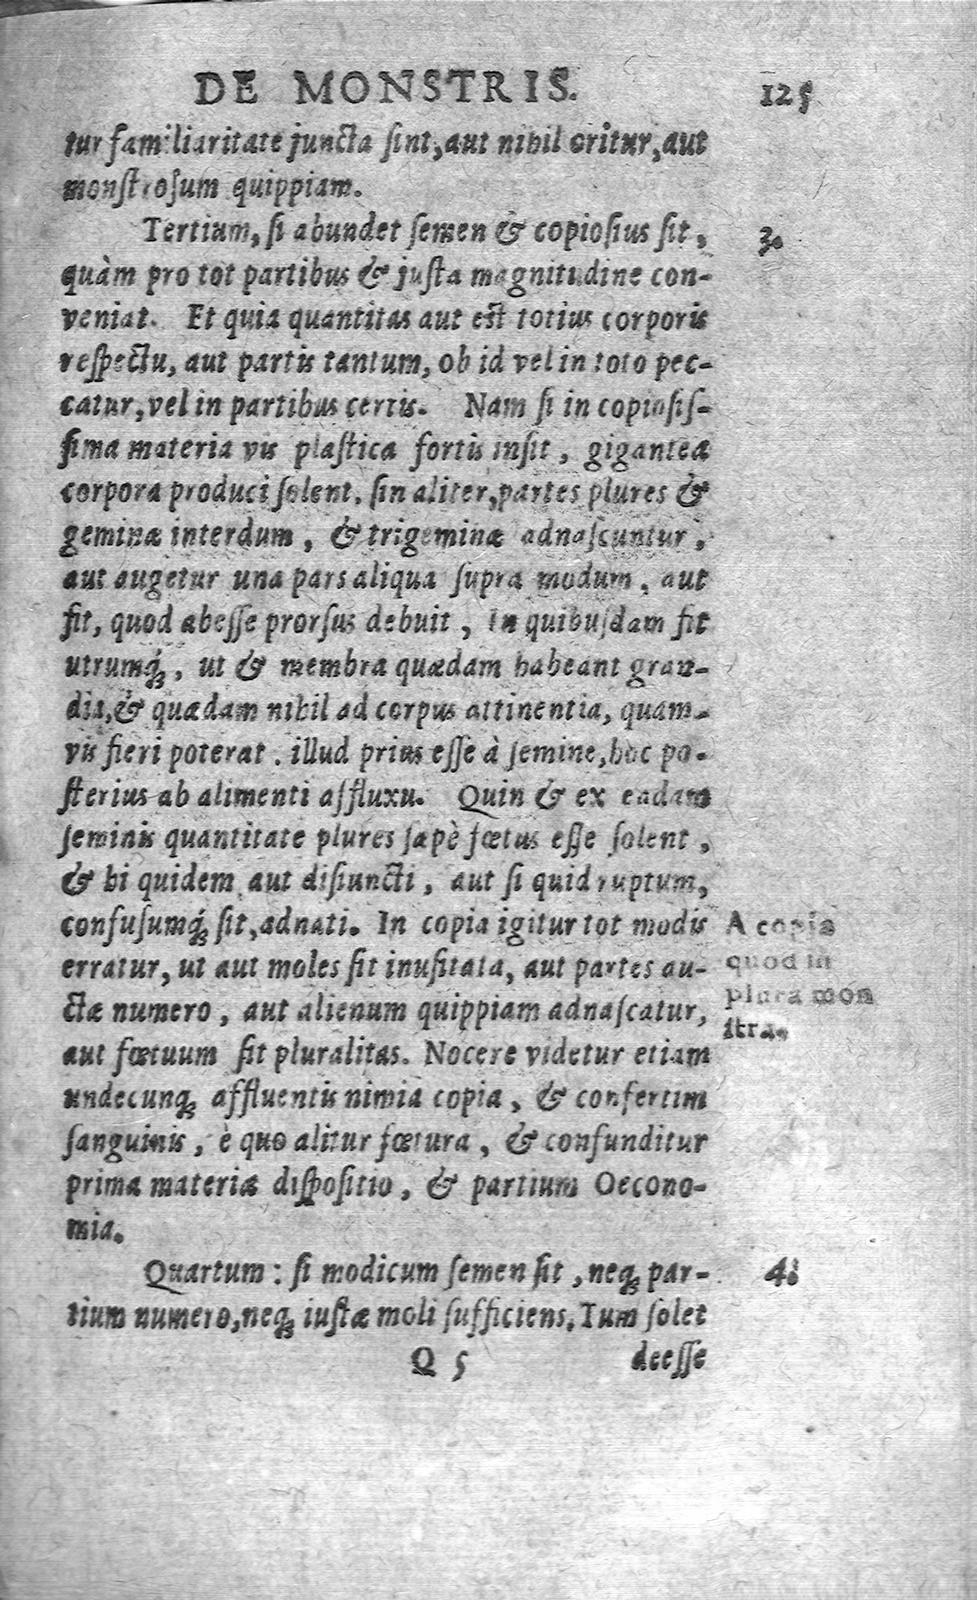 DE MONSTRIS. 125
tur familiaritate juncta ſint, aut nihil oritur, aut
monſtroſum quippiam.
Tertium, ſi abundet ſemen & copioſius ſit, 3.
quàm pro tot partibus & juſta magnitudine con-
veniat. Et quia quantitas aut eſt totius corporis
reſpectu, aut partis tantum, ob id vel in toto pec-
catur, vel in partibus certis. Nam ſi in copioſiſ-
ſima materia vis plaſtica fortis inſit, giganteæ
corpora produci ſolent. ſin aliter, partes plures &
geminæ interdum, & trigeminæ adnaſcuntur,
aut augetur una pars aliqua ſupra modum, aut
fit, quod abeſſe prorſus debuit, In quibuſdam fit
utrumq́ꝫ, ut & membra quædam habeant gran-
dia, & quædam nihil ad corpus attinentia, quam-
vis fieri poterat. illud prius eſſe à ſemine, hoc po-
ſterius ab alimenti affluxu. Quin & ex eadam
ſeminis quantitate plures ſæpè fœtus eſſe ſolent,
& hi quidem aut diſiuncti, aut ſi quid ruptum,
confuſumq́ꝫ ſit, adnati. In copia igitur tot modis
erratur, ut aut moles ſit inuſitata, aut partes au-
ctæ numero, aut alienum quippiam adnaſcatur,
aut fœtuum ſit pluralitas. Nocere videtur etiam
undecunqꝫ affluentis nimia copia, & confertim
ſanguinis, è quo alitur fœtura, & confunditur
prima materiæ diſpoſitio, & partium Oecono-
mia.
A copia
quod in
plura mon
ſtra.
Quartum: ſi modicum ſemen ſit, neqꝫ par- 4.
tium numero, neqꝫ iuſtæ moli ſufficiens, Tum ſolet
Q 5 deeſſe